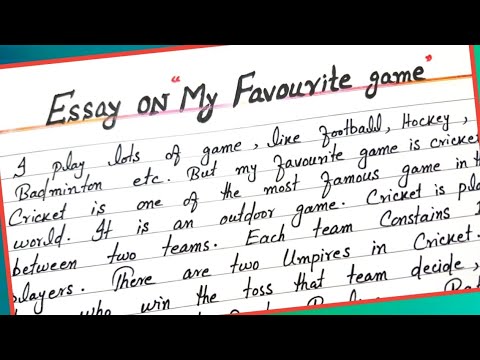 Essay on "My Favourite game"
I play lots of game, like football, Hockey,
Badminton etc. But my favourite game is cricket
Cricket is one of the most famous game in th
world. It is an outdoor game. Cricket is pla
between two teams. Each team Constains 1
players. There are two Umpires in Cricket.
who win the toss that team decide,